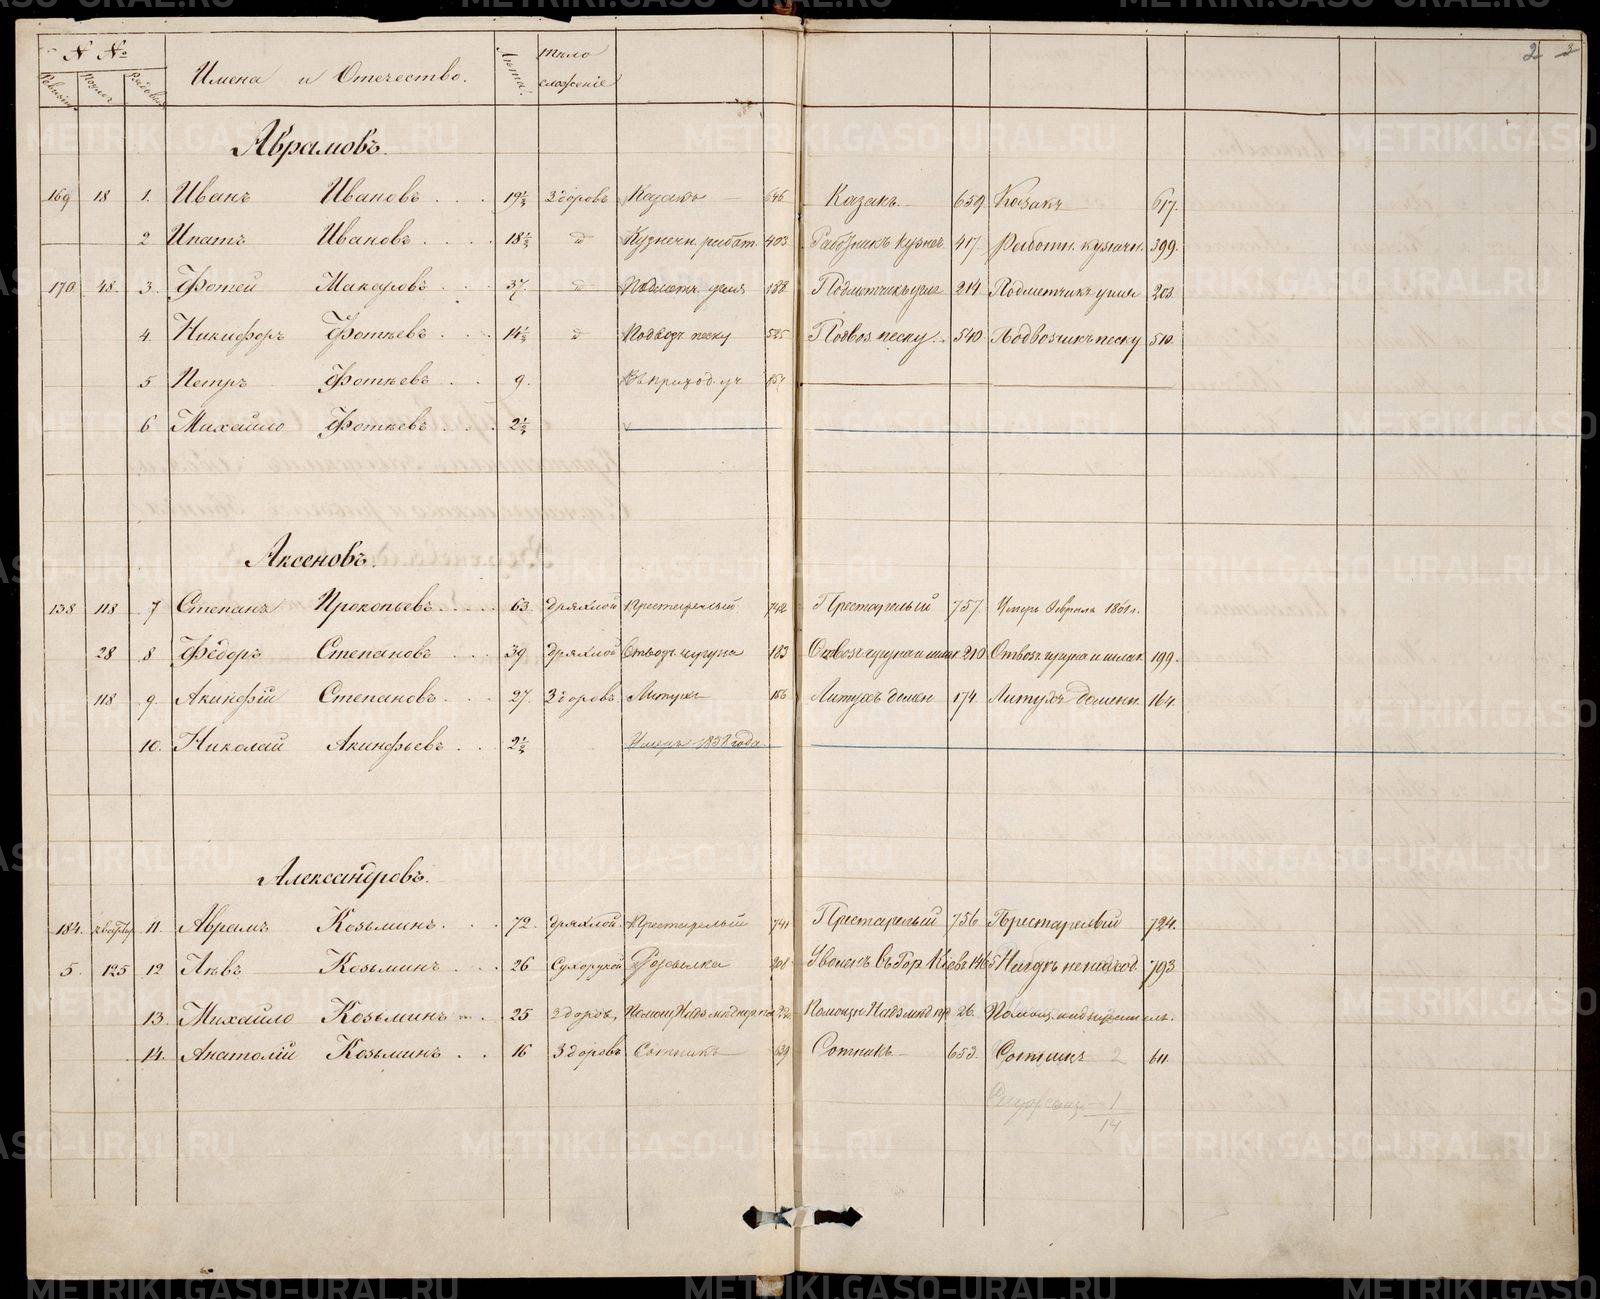 2 3
N № Имена и Отечество. Лѣта. Тѣло сложеніе
Ревизіи Рядовые
Аврамовъ.
169 18 1. Иванъ Ивановъ 19½ Здоровъ Казакъ 646 Казакъ 659 Казакъ 617.
2 Ипатъ Ивановъ 18½ d Кузнечн. работ. 403 Работникъ кузнеч 417. Работн. кузнечн. 399.
170 48. 3. Фотей Макаровъ 37. d Подметч. угля 188 Подметчикъ угля 214 Подметчикъ угля 203.
4. Никифоръ Фотѣевъ 14½ d Подвозч песку 525 Подвоз песку. 540 Подвозчикъ песку 510.
5 Петръ Фотѣевъ 9. Въ приход. уч
6 Михайло Фотѣевъ 2½
Аксеновъ.
138 118 7 Степанъ Прокопьевъ 63. Дряхлой Престарелый 742 Престарелый 757. Умеръ Февраля 1861 г.
28 8 Ѳедоръ Степановъ 39 Дряхлой Отвозч чугуна 183 Отвозч чугуна и шлак 210 Отвозч чугуна и шлак 199.
118 9. Акинфій Степановъ 27. Здоровъ Литухъ 156 Литухъ домен 174 Литухъ доменн. 164.
10. Николай Акинфьевъ 2½ Умеръ 1858 года
Александровъ.
184. 11. Аврамъ Козьминъ 72. Дряхлой. Престарелый 741 Престарелый 756 Престарелый 724.
5. 125 12 Левъ Козьминъ 26 Сухорукой Розсылка 201 Уволенъ въ Гор. Кіевъ
13. Михайло Козьминъ 25 Здоровъ, Помощ Надз. Помощн Надз 26. Помощ. надзирателъ.
14. Анатолій Козьминъ 16 Здоровъ Сотникъ 639 Сотникъ 653. Сотникъ 2 611
1
14
METRIKI.GASO-URAL.RU